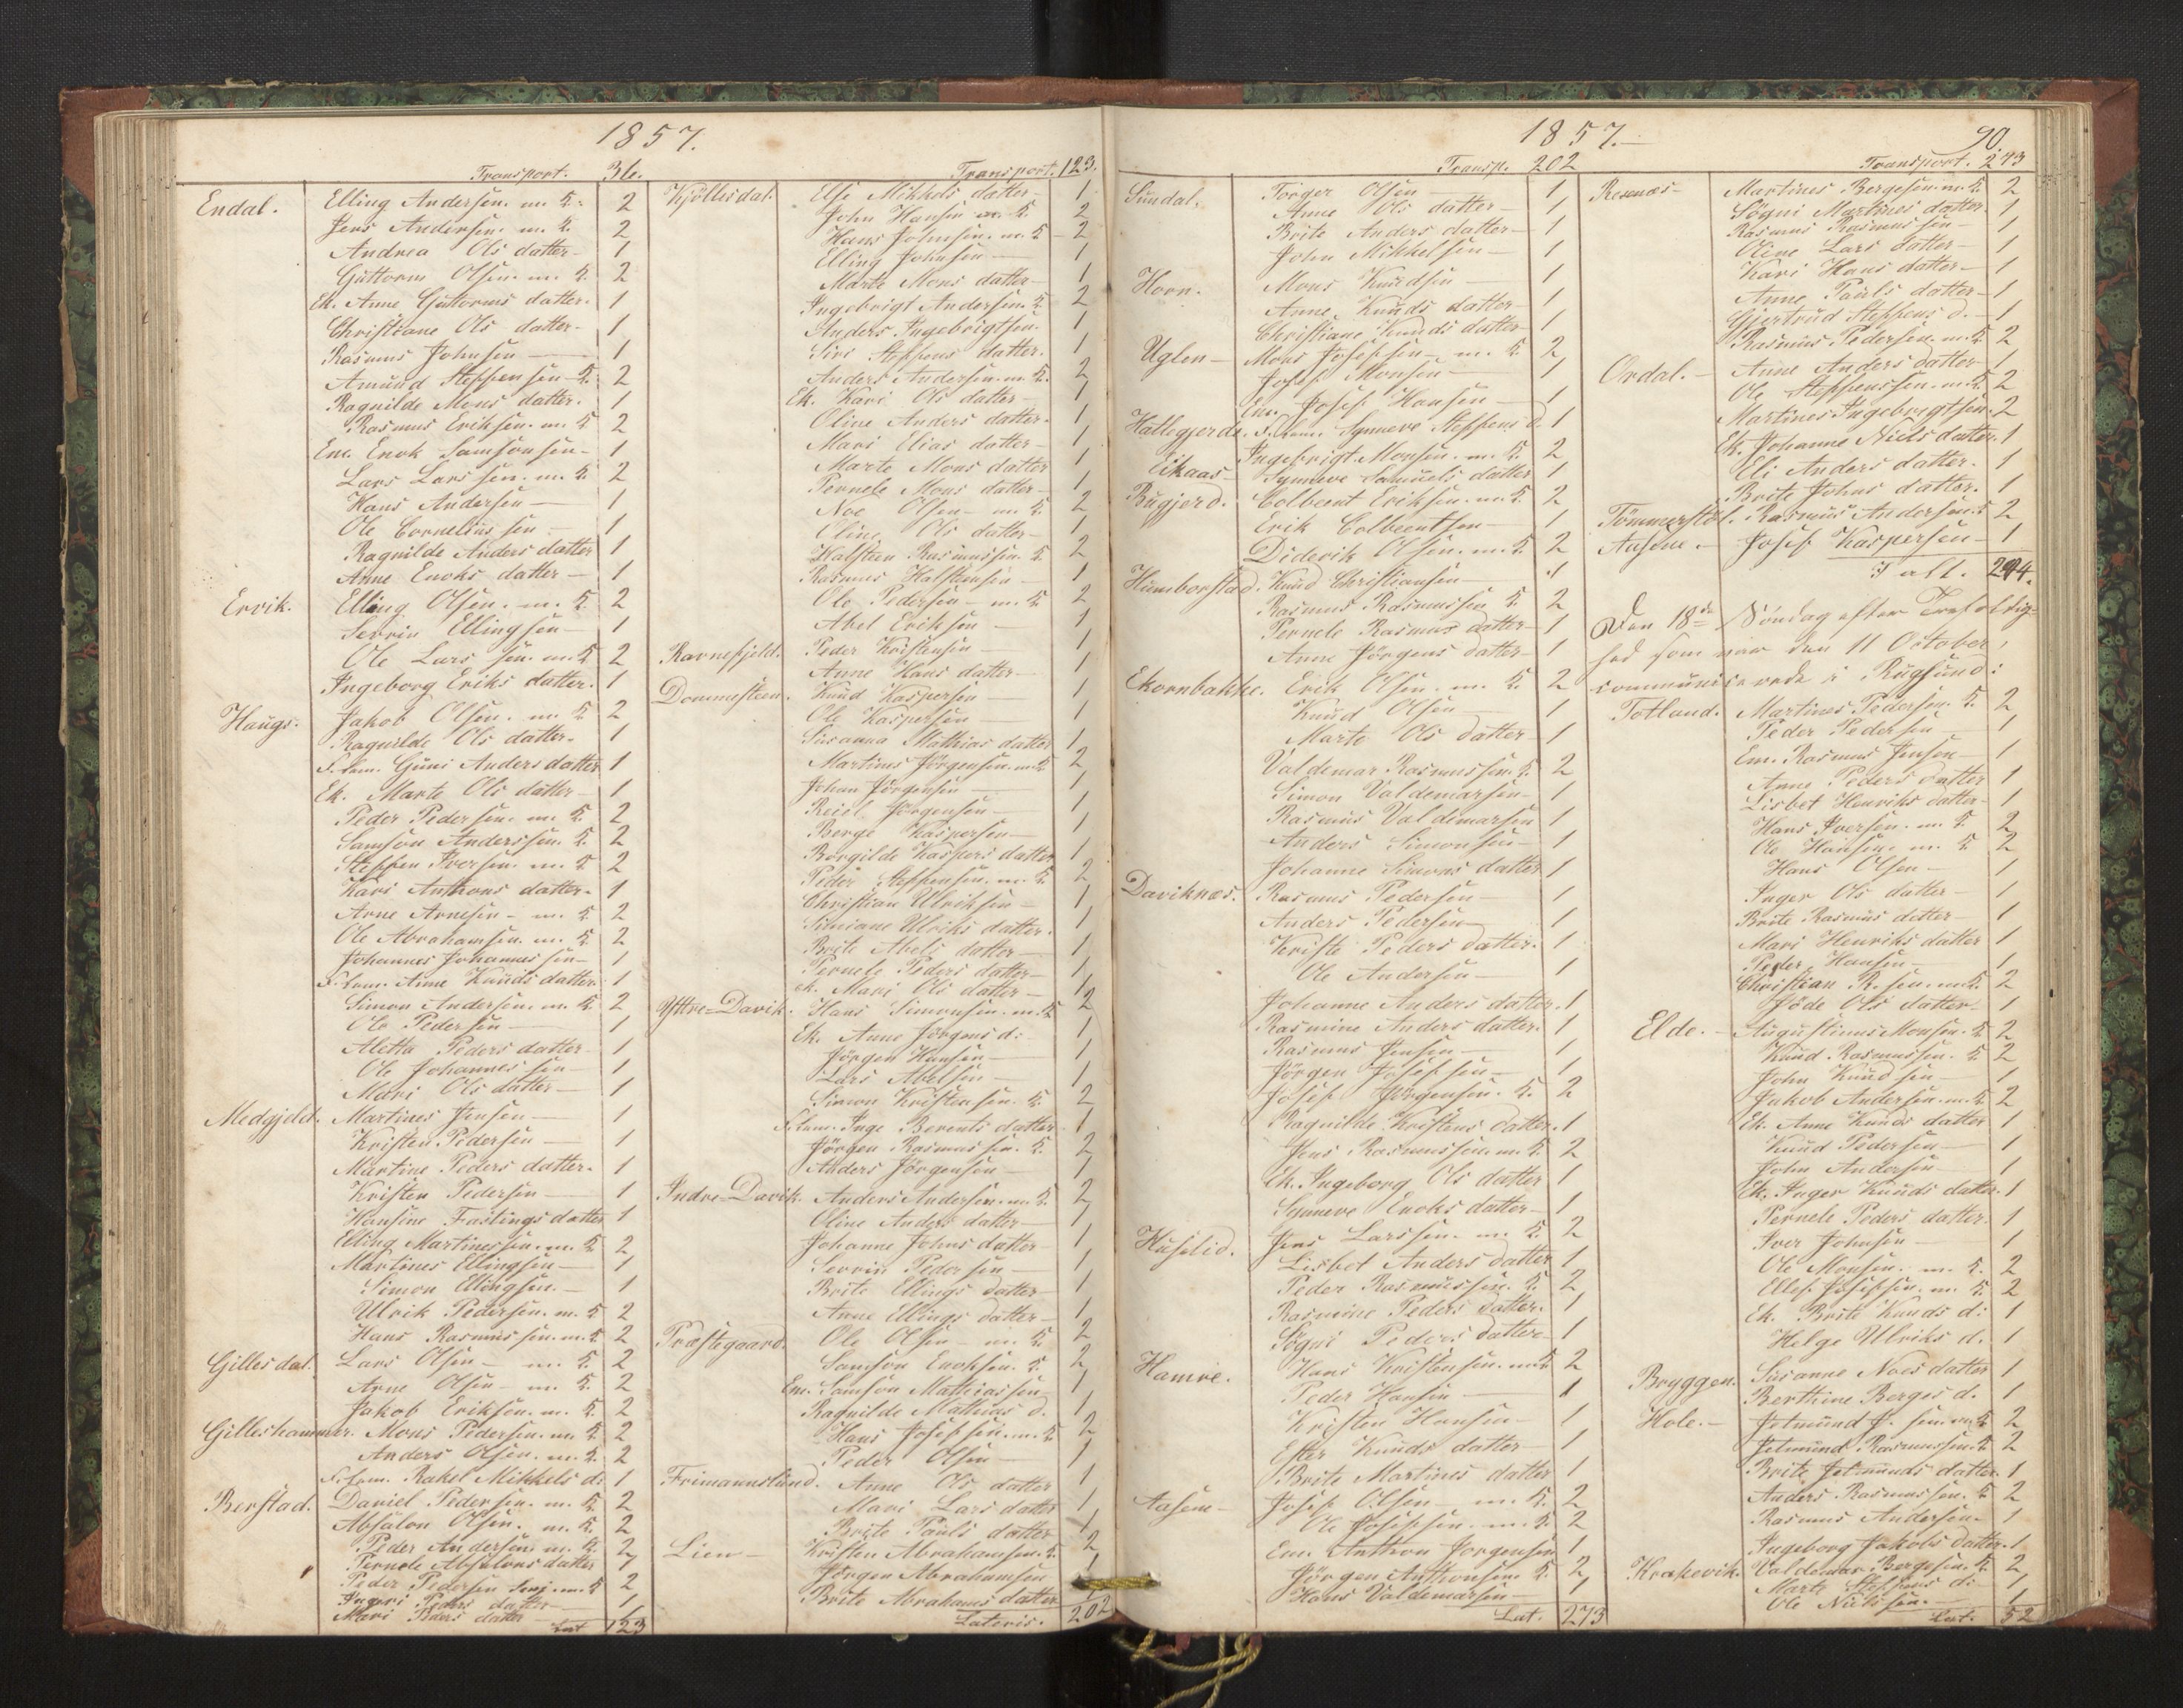 1857.
Transport. 36.
Endal. Elling Andersen. m. K. 2
Jens Andersen. m. K. 2
Andrea Ols datter - 1
Guttorm Olsen. m. K. 2
Ek. Anne Guttorms datter. 1
Christiane Ols datter - 1
Rasmus Johnsen — 1
Amund Steffensen K. 2
Ragnilde Mons datter. 1
Rasmus Eriksen. m. K 2
Em. Enok Samsonsen - 1
Lars Larssen. m. K 2
Hans Andersen — 1
Ole Cornelius sen - 1
Ragnilde Anders datter 1
Anne Enoks datter — 1
Ervik. Elling Olsen. m. K. 2
Severin Ellingsen — 1
Ole Lars sen. m. K 2
Ingeborg Eriks datter. 1
Haugs. Jakob Olsen. m. K 2
Ragnilde Ols datter - 1
F. lem. Guni Anders datter 1
Ek. Marte Ols datter - 1
Peder Pedersen. m. K 2
Samson Anderssen. K. 2
Steffen Iversen. m. K 2
Kari Anthons datter - 1
Arne Arnesen - m. K 2
Ole Abrahamsen. m. K. 2
Johannes Johannessen - 1
F. lem. Anne Knuds datter. 1
Simon Andersen. m. K 2
Ole Pedersen — 1
Aletta Peders datter - 1
Ole Johannes sen - 1
Mari Ols datter — 1
Medgjeld. Martines Jensen — 1
Kristen Pedersen — 1
Martine Peders datter. 1
Kristen Pedersen — 1
Hansine Fastings datter 1
Elling Martinessen. m. K 2
Martines Ellingsen — 1
Simon Ellingsen. — 1
Ulrik Pedersen. m. K 2
Hans Rasmussen. m. K 2
Gillesdal. Lars Olsen — m. K. 2
Arne Olsen - m. K. 2
Jakob Eriksen. m. K. 2
Gilleshammer. Mons Pedersen. m. K 2
Anders Olsen. m. K. 2
F. lem. Rakel Mikkels d: 1
Berstad. Daniel Pedersen. m. K. 2
Absalon Olsen. m. K. 2
Peder Andersen. m. K. 2
Pernele Absalons datter 1
Peder Pedersen m. K 2
Ingeri Peders datter — 1
Mari Peders datter — 1
Lat 123
Transport. 123.
Kjöllesdal. Else Mikkels datter - 1
John Hansen m. K. 2
Hans Johnsen. m. K - 2
Elling Johnsen — 1
Marte Mons datter 1
Ingebrigt Andersen. K 2
Anders Ingebrigtsen. 1
Siri Steffens datter. 1
Anders Andersen. m. K. 2
Ek. Kari Ols datter — 1
Oline Anders datter. 1
Mari Elias datter — 1
Marte Mons datter 1
Pernele Mons datter - 1
Noe Olsen - m. K 2
Oline Ols datter — 1
Halsten Rasmussen. K 2
Rasmus Halstensen — 1
Ole Pedersen - m. K. 2
Abel Eriksen — 1
Ravnefjeld. Peder Kristensen — 1
Anne Hans datter — 1
Dommesteen. Knud Kaspersen — 1
Ole Kaspersen 1
Susanna Mathias datter 1
Martines Jörgensen. m. K 2
Johan Jörgensen — 1
Reiel Jörgensen — 1
Berge Kaspersen — 1
Borgilde Kaspers datter 1
Peder Steffensen. m. K. 2
Christian Ulriksen — 1
Simiane Ulriks datter. 1
Brite Abels datter — 1
Pernele Peders datter — 1
ek. Mari Ols datter — 1
Yttre=Davik. Hans Simonsen. m. K 2
Ek. Anne Jörgens d: 1
Jörgen Hansen — 1
Lars Abelsen — 1
Simon Kristensen. K. 2
F. lem. Inge Berents datter 1
Jörgen Rasmussen. K. 2
Anders Jörgensen — 1
Indre=Davik. Anders Andersen. m. K. 2
Eline Anders datter — 1
Johanne Johns datter 1
Severin Pedersen — 1
Brite Ellings datter — 1
Anne Ellings datter — 1
Præstegaard. Ole Olsen - m. K. 2
Samson Enoksen. K. 2
Em. Samson Mathiassen 1
Ragnilde Mathias d. 1
Hans Josefsen. m. K 2
Peder Olsen — 1
Frimannslund. Anne Ols datter 1
Mari Lars datter 1
Brite Pauls datter 1
Lien — Kristen Abrahamsen. K. 2
Jörgen Abrahamsen 1
Brite Abrahams datter 1
Lateris. 202
1857. —
Transp. 202
Sundal. Torger Olsen — 1
Anne Ols datter — 1
Brite Anders datter — 1
John Mikkelsen — 1
Horn. Mons Knudsen — 1
Anne Knuds datter — 1
Christiane Knuds datter 1
Uglen — Mons Josefsen — m. K. 2
Josef Monsen — 1
Em. Josef Hansen — 1
Hallegjerde. F. lem. Synneve Steffens d. 1
Ingebrigt Monsen. m. K. 2
Eikaas — Synneve Samuels datter 1
Bugjerd. Colbeent Eriksen. m. K. 2
Erik Colbeentsen — 1
Diderik Olsen. m. K. 2
Humborstad. Knud Christiansen — 1
Rasmus Rasmussen K. 2
Pernele Rasmus datter — 1
Anne Jörgens datter — 1
Ekornbakke. Erik Olsen. m. K. 2
Knud Olsen — 1
Marte Ols datter — 1
Valdemar Rasmussen. K. 2
Simon Valdemarsen — 1
Rasmus Valdemarsen 1
Anders Simonsen — 1
Johanne Simons datter 1
Daviknæs. Rasmus Pedersen — 1
Anders Pedersen — 1
Kriste Peders datter. 1
Ole Andersen — 1
Johanne Anders datter. 1
Rasmine Anders datter. 1
Rasmus Jensen — 1
Jörgen Josefsen — 1
Josef Jörgensen. K. 2
Ragnilde Kristens datter. 1
Jens Rasmussen. m. K 2
Ek. Ingeborg Ols datter 1
Synneve Enoks datter — 1
Huselid. Jens Larssen. m. K. 2
Lisbet Anders datter 1
Peder Rasmussen. K. 2
Rasmine Peders datter. 1
Sögni Peders datter — 1
Hamre. Hans Kristensen. m. K 2
Peder Hansen — 1
Kristen Hansen — 1
Ester Knuds datter — 1
Brite Martines datter 1
Aasene — Josef Olsen — m. K. 2
Ole Josefsen. m. K. 2
Em. Anthon Jorgensen 1
Jörgen Anthonsen. K. 2
Hans Valdemarsen — 1
Lat. 273
90.
Transport. 273
Resenæs — Martines Bergesen. m. K. 2
Sögni Martines datter. 1
Rasmus Rasmussen — 1
Oline Lars datter — 1
Kari Hans datter — 1
Anne Pauls datter — 1
Gjertrud Steffens d. — 1
Rasmus Pedersen. m. K 2
Ordal. — Anne Anders datter — 1
Ole Steffenssen. m. K. 2
Martines Ingebregtsen. 2
Ek. Johanne Niels datter. 1
Eli Anders datter. 1
Brite Johns datter. 1
Tömmerstöl. Rasmus Andersen. K 2
Aasene. — Josef Kaspersen — 1
I alt. 294.
Den 18de Söndag efter Trefoldig=
hed som var den 11 October,
communicerede i Rugsund:
Totland. Martines Pedersen. K. 2
Peder Pedersen — 1
Em. Rasmus Jensen — 1
Anne Peders datter 1
Lisbet Henriks datter — 1
Hans Iversen. m. K 2
Ole Hansen. m. K 2
Hans Olsen — 1
Inger Ols datter — 1
Brite Rasmus datter — 1
Mari Henriks datter 1
Peder Hansen — 1
Christian R. sen. m. K. 2
Jöde Ols datter — 1
Elde. — Augustinus Monsen. K 2
Knud Rasmussen. K 2
John Knudsen — 1
Jakob Andersen. m. K. 2
Ek. Anne Knuds datter 1
Knud Pedersen — 1
John Andersen — 1
Ek. Inger Knuds datter. 1
Pernele Peders datter. 1
Iver Johnsen — 1
Ole Monsen. m. K. 2
Ellef Josefsen. m. K. 2
Ek. Brite Knuds d: 1
Helge Ulriks d. 1
Bryggen. Susanne Noes datter 1
Berthine Berges d. 1
Hole. — Jetmund J. sen. m. K 2
Jetmund Rasmussen. K 2
Brite Jetmunds datter. 1
Anders Rasmussen. K 2
Rasmus Andersen. 1
Ingeborg Jakobs datter. 1
Krakevik. Valdemar Bergesen. K 2
Marte Steffens d: 1
Ole Nielssen. — 1
Lat. 52